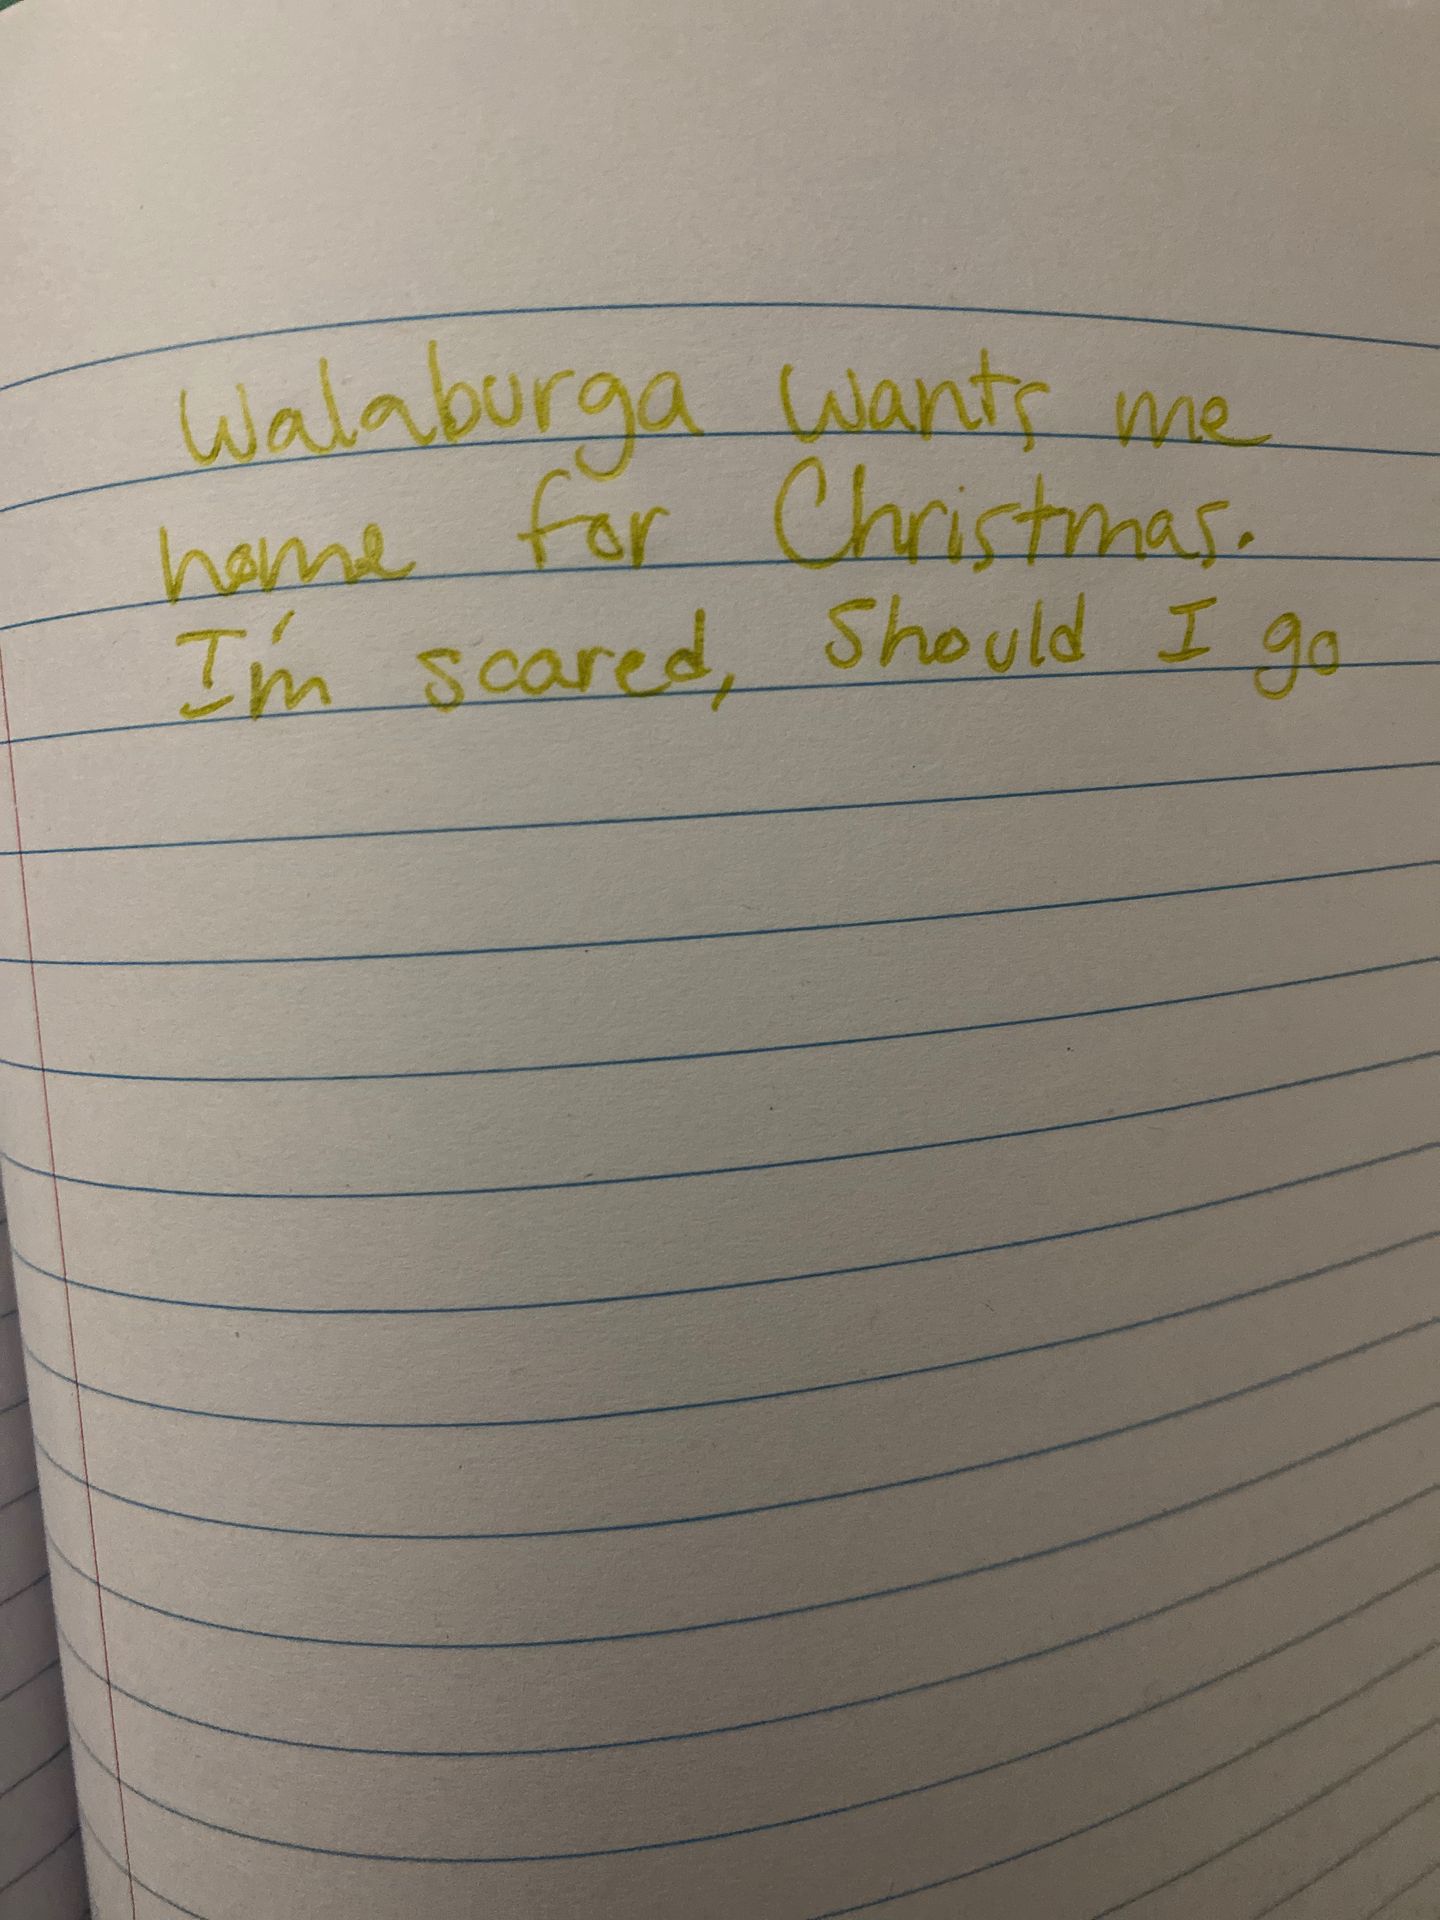 Walaburga wants me
home for Christmas.
I'm scared, should I go